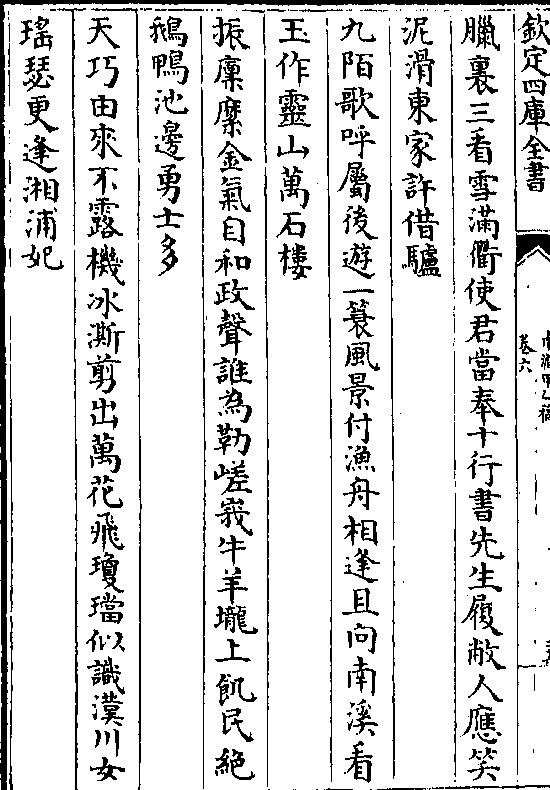 欽定四庫全書
卷六
臘裏三看雪滿衢使君當奉十行書先生履敝人應笑
泥滑東家許借驢
九陌歌呼屬後遊一蓑風景付漁舟相逢且向南溪看
玉作靈山萬石樓
振廩麋金氣自和政聲誰為勒嵯峩牛羊壠上飢民絶
鵝鴨池邊勇士多
天巧由來不露機冰澌剪出萬花飛瓊璫似識漢川女
瑤瑟更逢湘浦妃